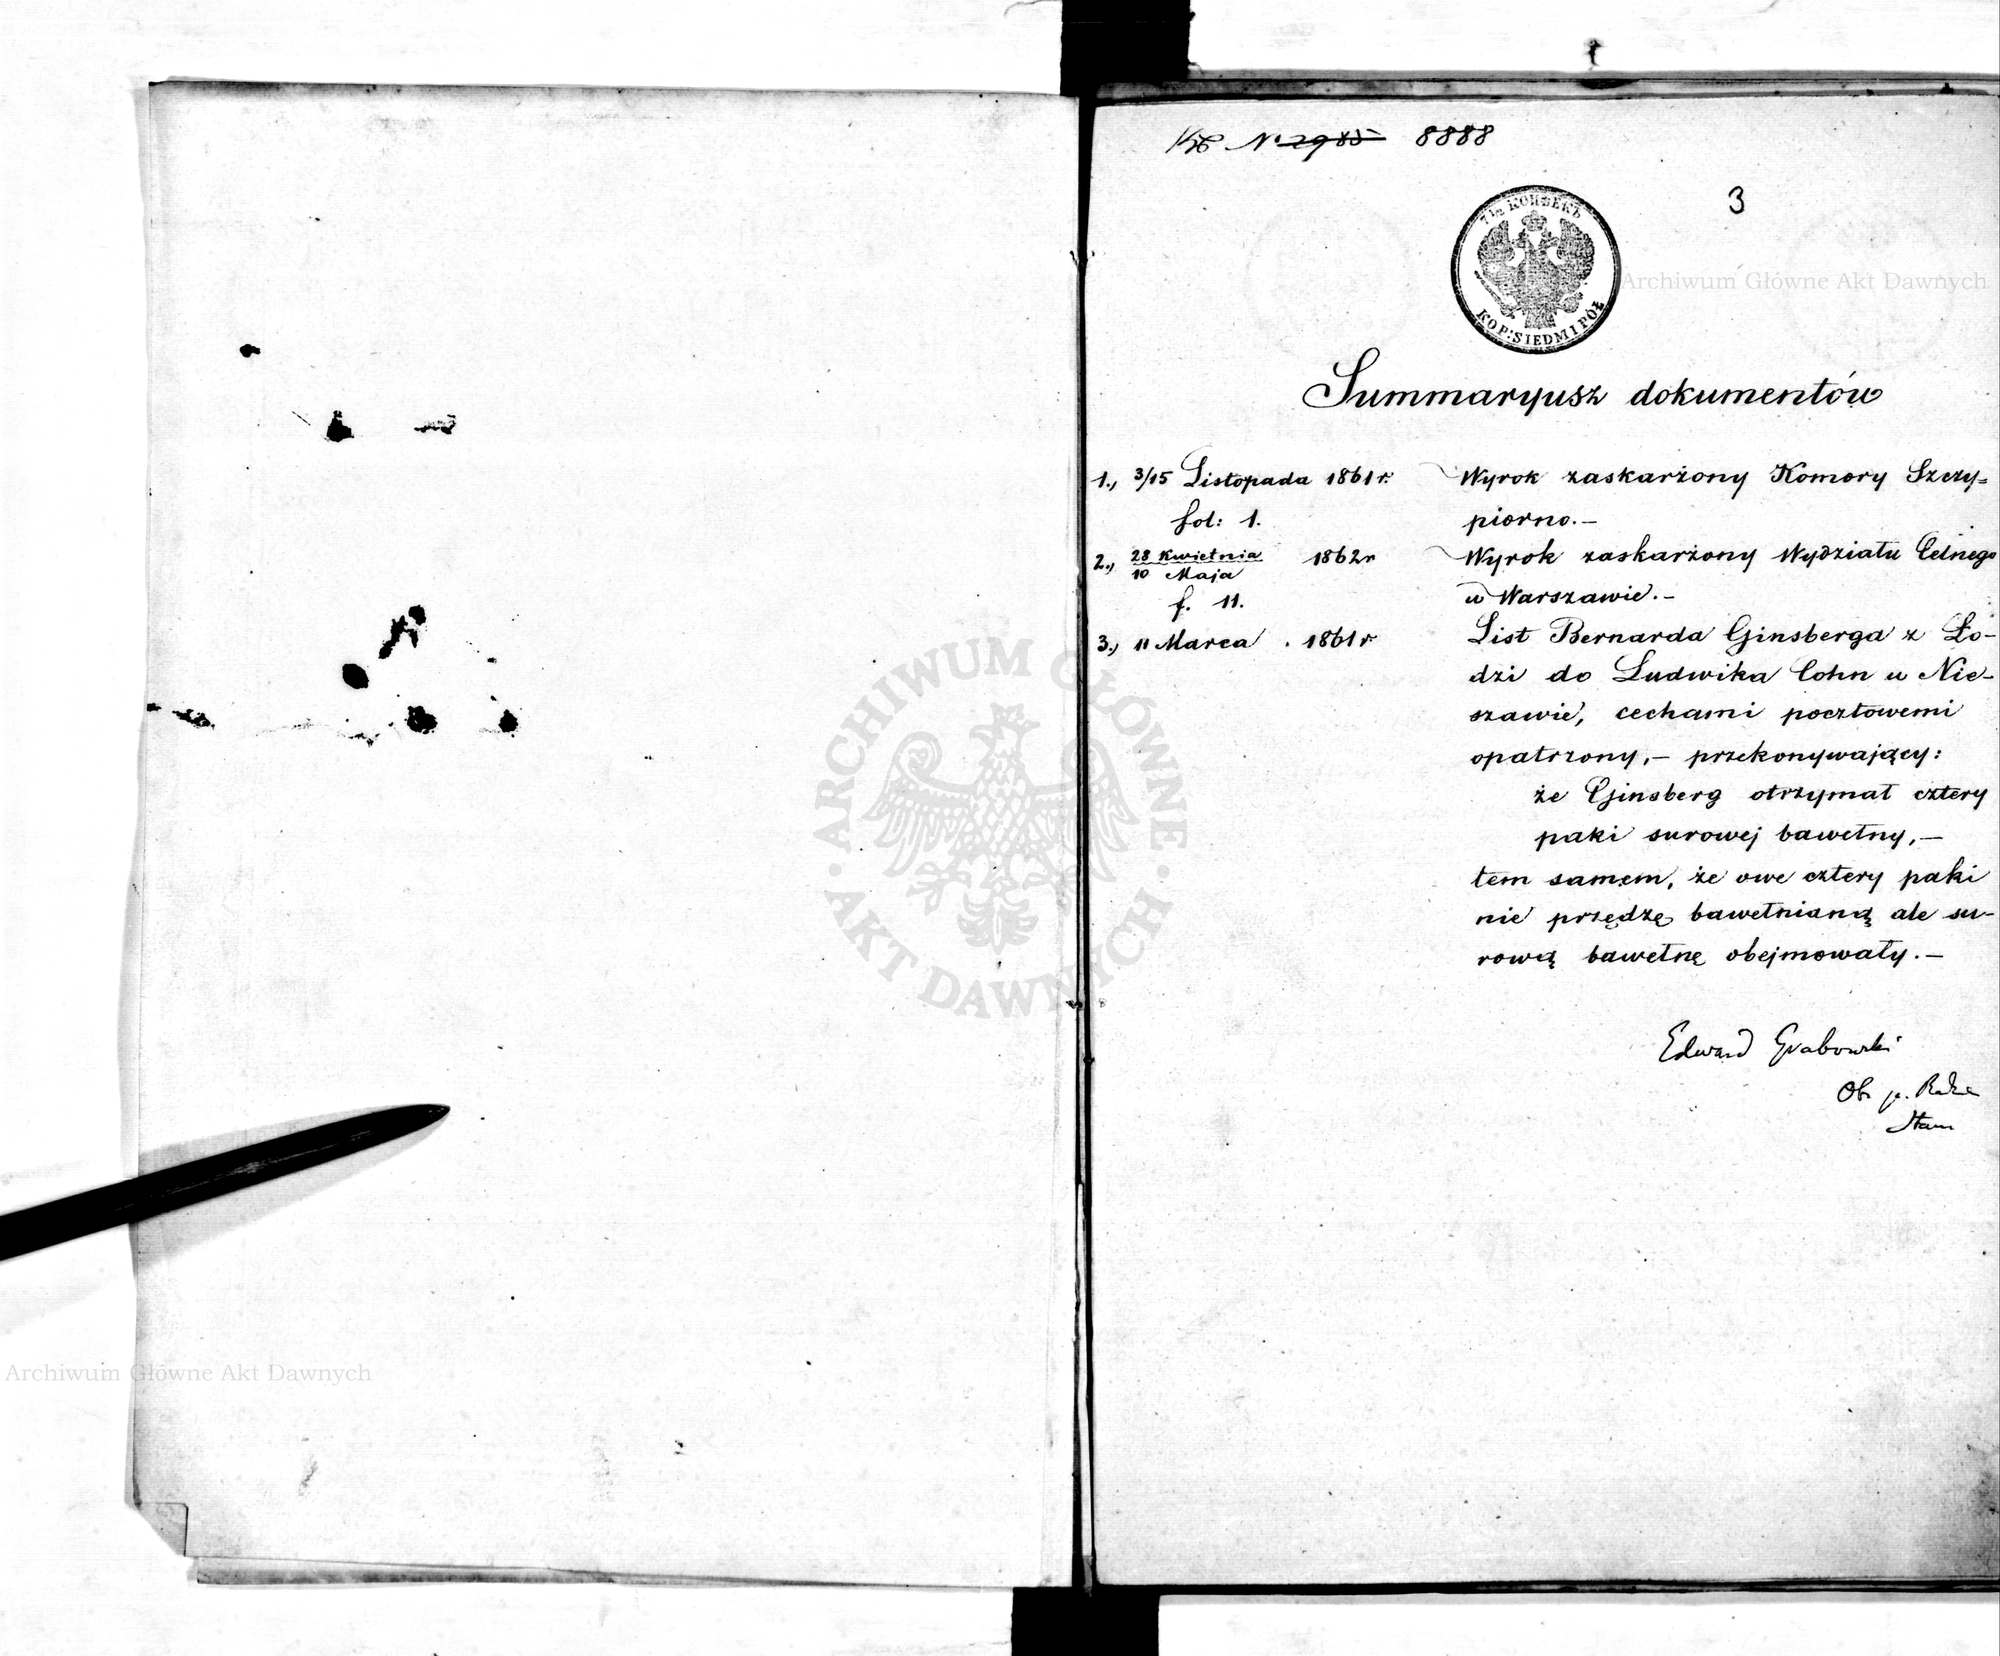 No 2985 8888
3
7 1/2 КОПѢЕКЪ
KOP: SIEDM I PÓŁ
Summaryusz dokumentów
1., 3/15 Listopada 1861 r. Wyrok zaskarżony Komory Szczy=
fol: 1. piorno.—
2., 28 Kwietnia 1862 r Wyrok zaskarżony Wydziału Celnego
10 Maja
f. 11. w Warszawie.—
3., 11 Marca . 1861 r List Bernarda Ginsberga z Ło-
dzi do Ludwika Cohn w Nie-
szawie, cechami pocztowemi
opatrzony,— przekonywający:
że Ginsberg otrzymał cztery
paki surowej bawełny,—
tem samem, że owe cztery paki
nie przędzę bawełnianą ale su-
rową bawełnę obejmowały.—
Edward Grabowski
Ob. p.
Stanu
Archiwum Główne Akt Dawnych
ARCHIWUM GŁÓWNE · AKT DAWNYCH ·
Archiwum Główne Akt Dawnych